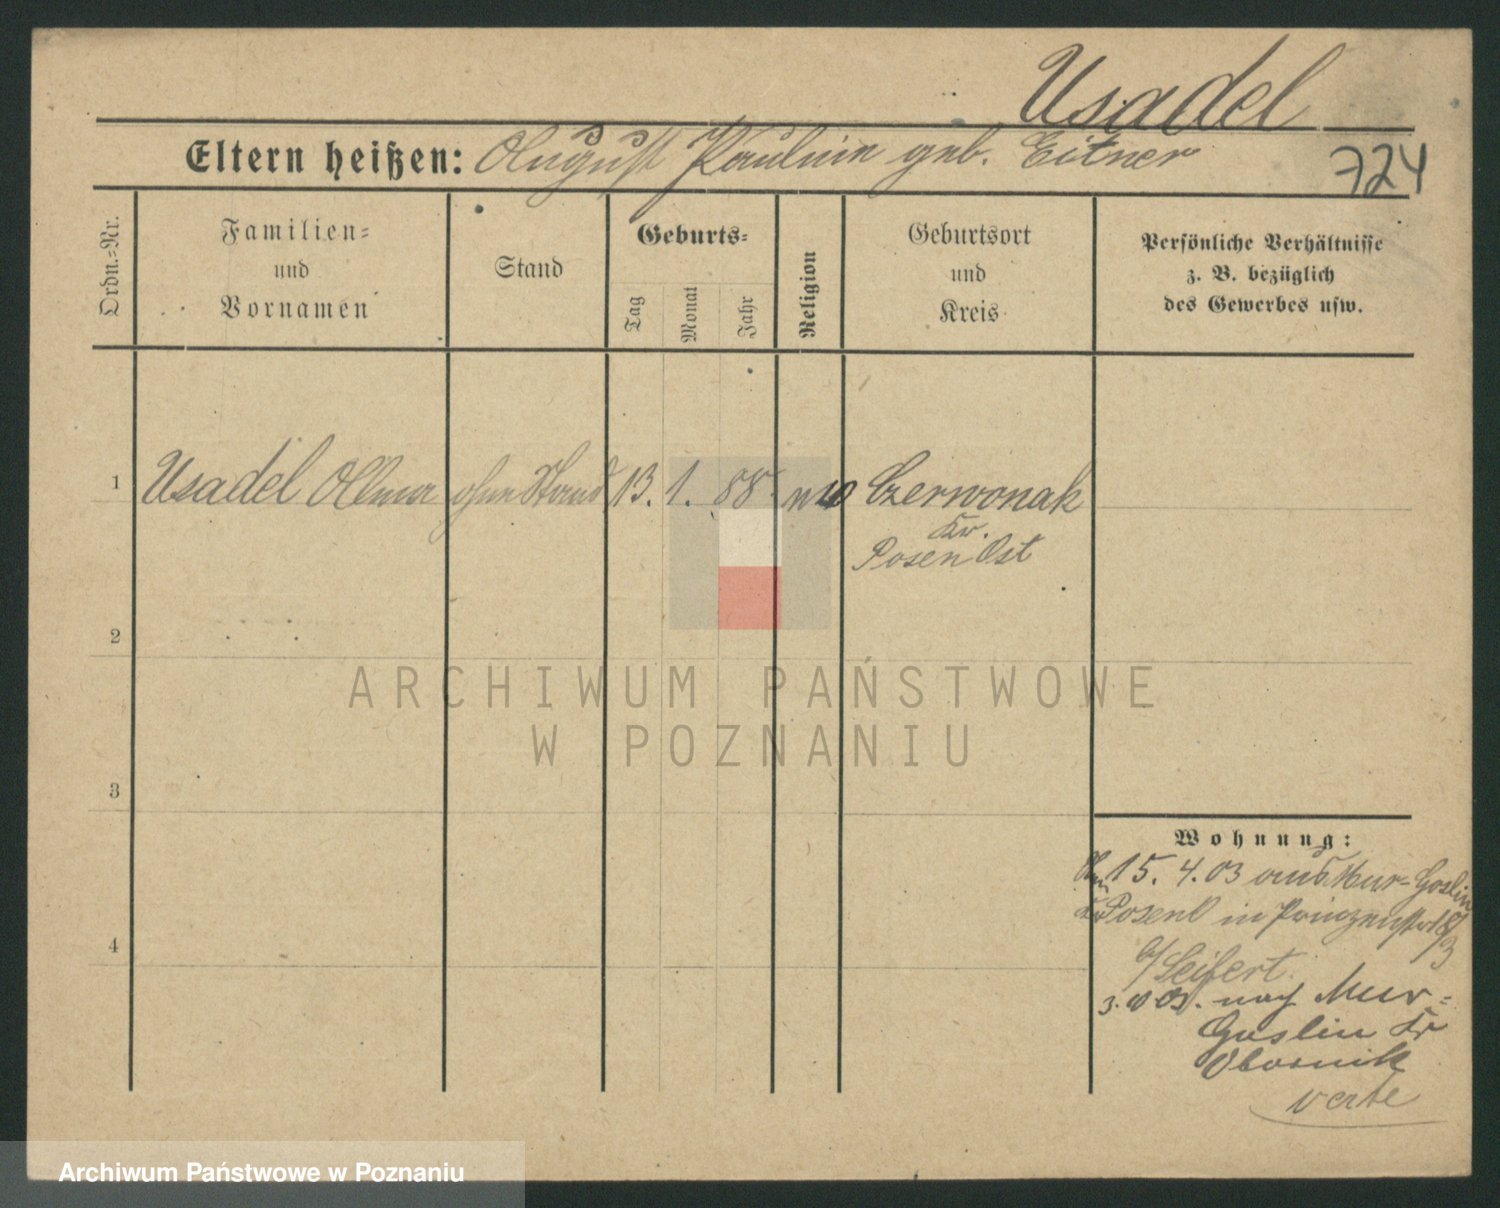 Usadel
Eltern heißen: August Paulina geb. Eitner
724
Ordn.=Nr.
Familien=
und
Vornamen
Stand
Geburts=
Tag
Monat
Jahr
Religion
Geburtsort
und
Kreis
Persönliche Verhältnisse
z. B. bezüglich
des Gewerbes usw.
1 Usadel ohne Stand 13. 1. 88. Czerwonak
Kr.
Posen Ost
2
3
4
Wohnung:
15. 4. 03 aus Mur-Goslin
Posen in
b/ Seifert.
3. nach Mur-
Goslin Kr
Obornik
verte
ARCHIWUM PAŃSTWOWE
W POZNANIU
Archiwum Państwowe w Poznaniu